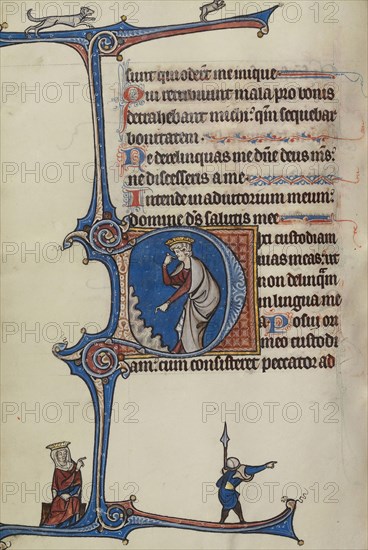 sunt qui oderunt me inique
Qui retribuunt mala pro bonis
detrahebant michi: qm sequebar
bonitatem
Ne derelinquas me dne deus ms:
ne discesseris a me
Intende in adiutorium meum:
domine ds salutis mee
Dixi custodiam
uias meas: ut
non delinqam
in lingua me
a Posui ori
meo custodi
am: cum consisteret peccator ad